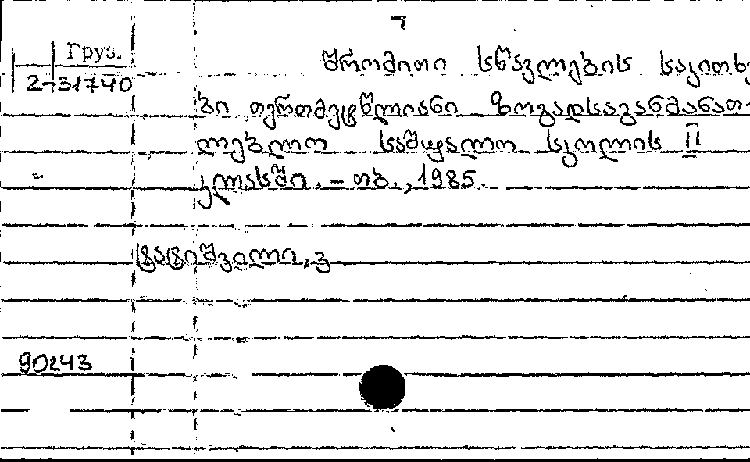 7
Груз.
2-31740
შრომითი სწავლების საკითხ
ბი თერთმეტწლიანი ზოგადსაგანმანათ-
ლებლო საშუალო სკოლის II
კლასში. - თბ., 1985.
ტატიშვილი, ვ
90243